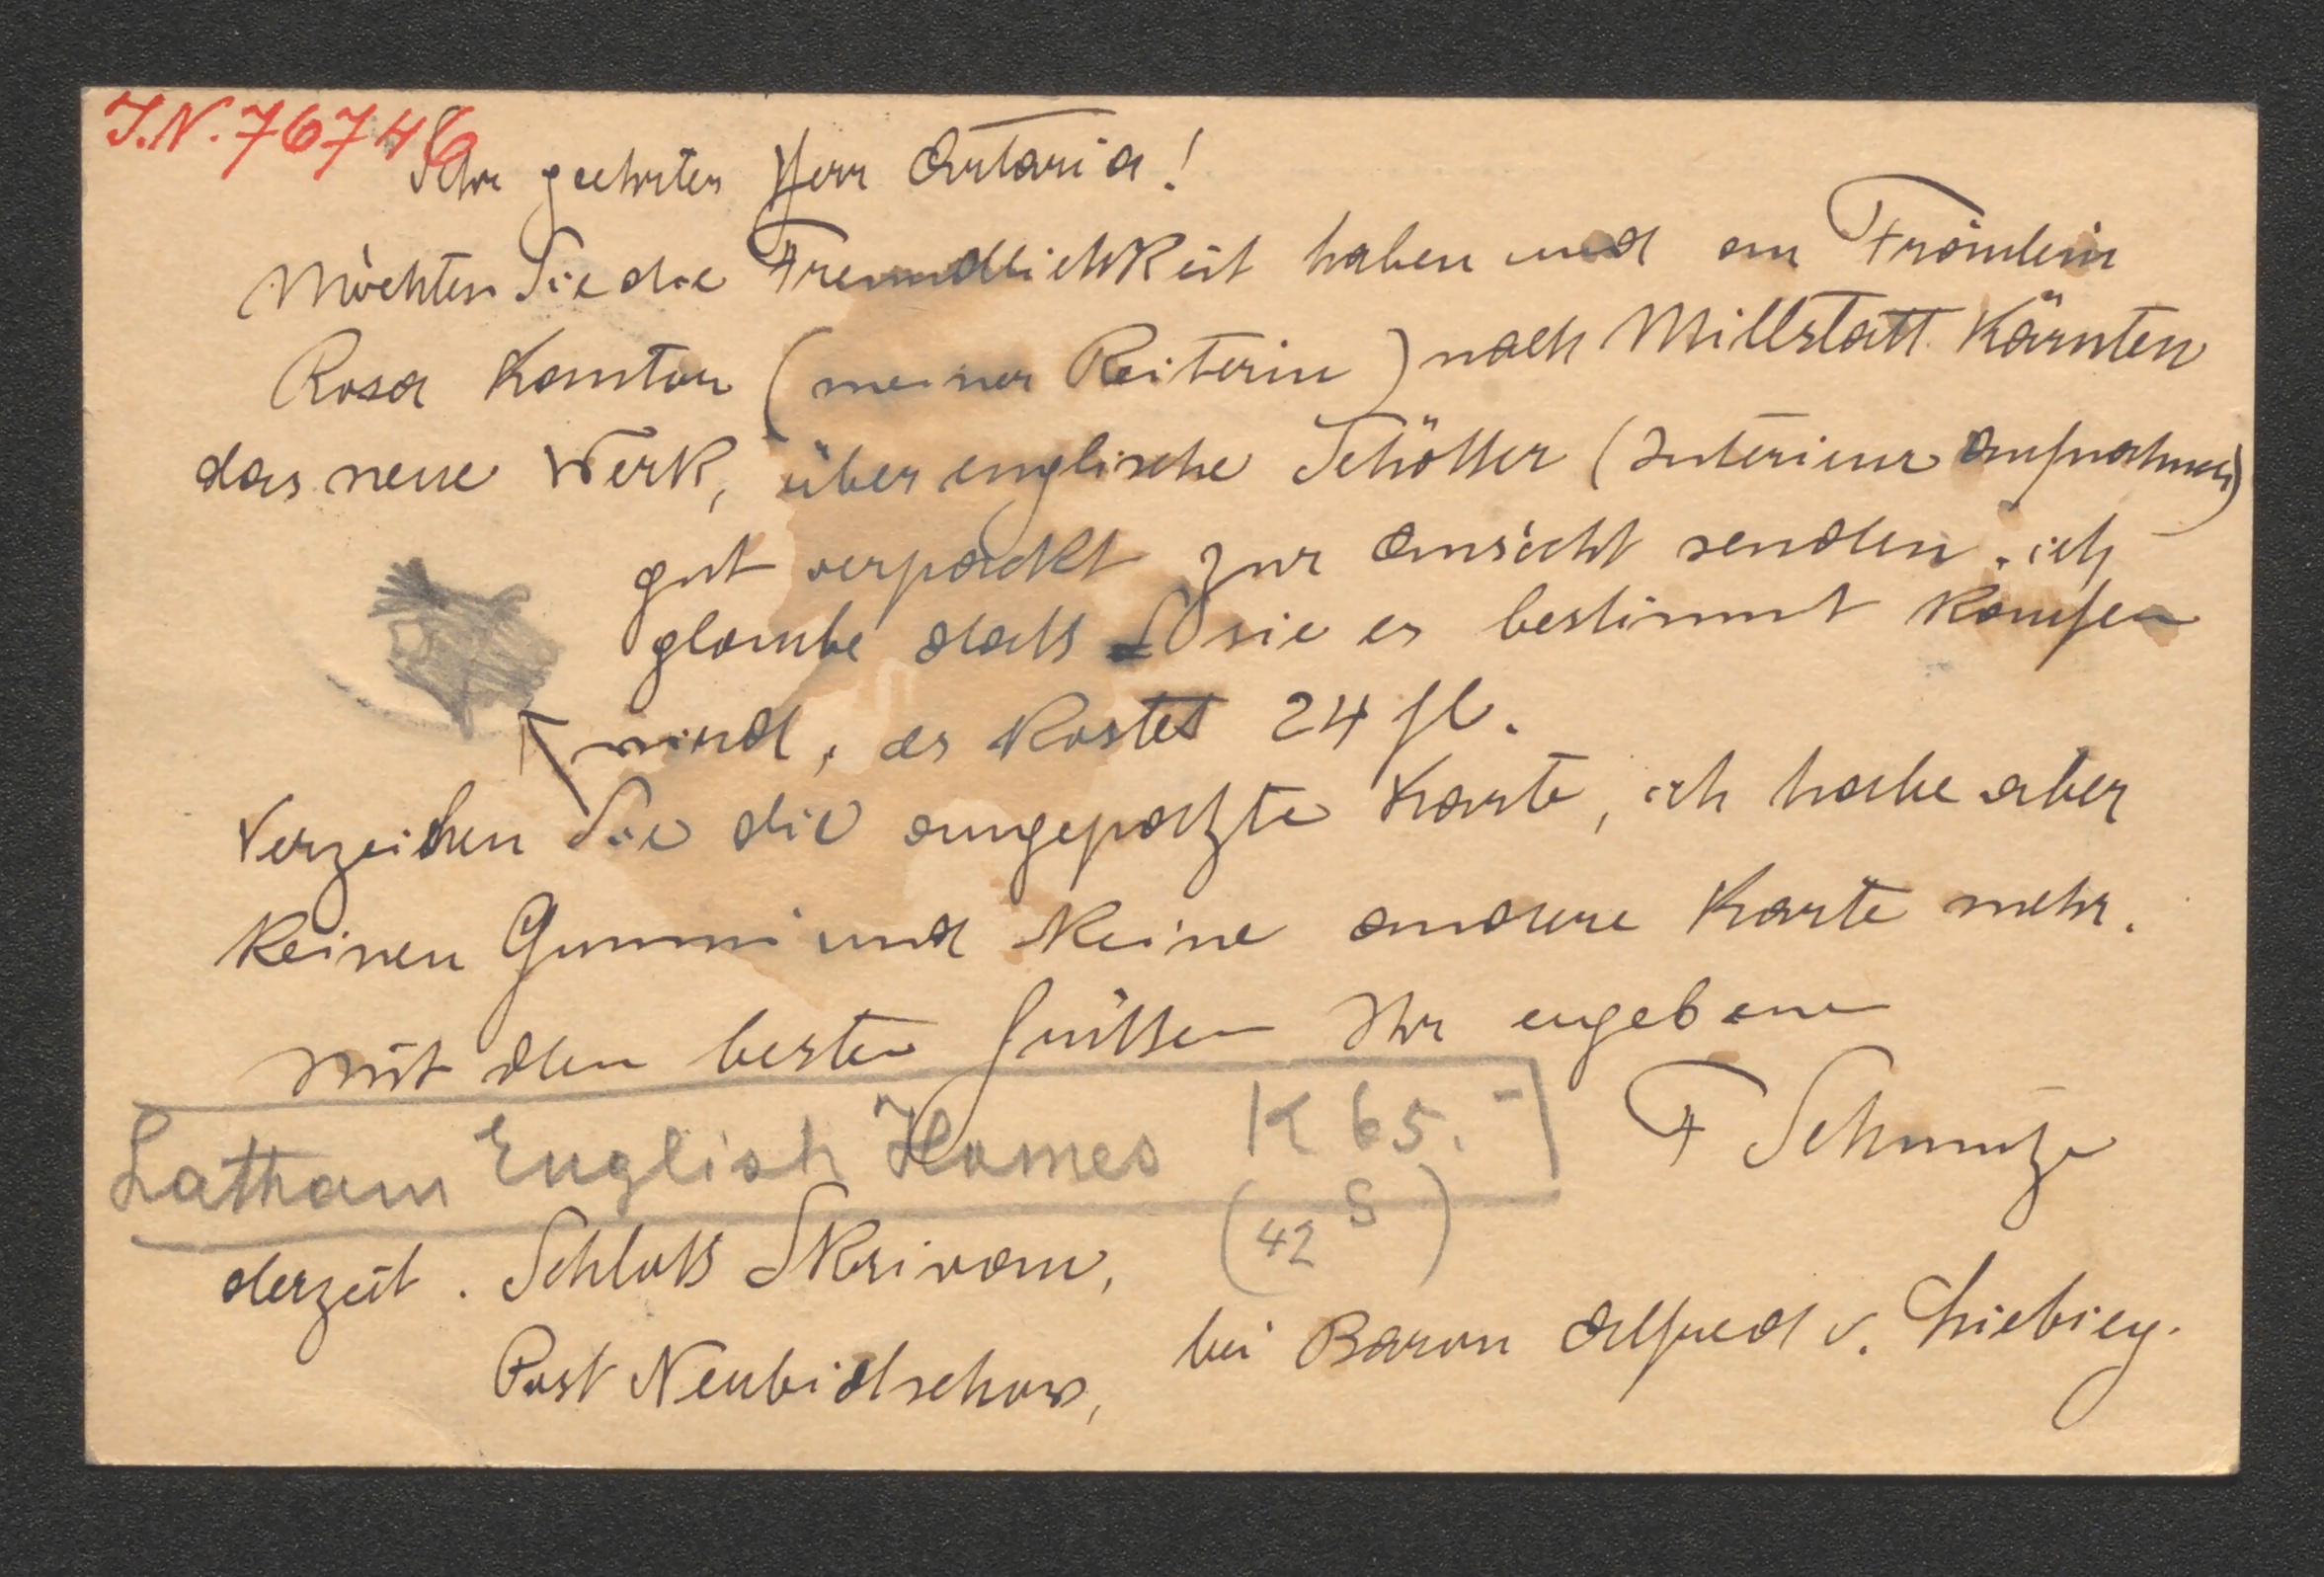 I.N. 76746
Sehr geehrter Herr Artaria!
Möchten Sie die Freundlichkeit haben und an Fräulein
Rosa Kantor (meiner Reiterin) nach Millstatt Kärnten
das neue Werk, über englische Schößer (Interieur Aufnahmen)
gut verpackt zur Ansicht senden. ich
glaube daß sie es bestimmt kaufen
wird, es kostet 24 fl.
Verzeihen Sie die angepatzte Karte, ich habe aber
keinen Gummi und keine andere Karte mehr.
Mit den besten Grüßen Ihr ergebener
F Schmutzer
Latham English Homes K 65.-
(42 S)
derzeit. Schloß Skrivan,
Post Neubidschow, bei Baron Alfred v. Liebieg.